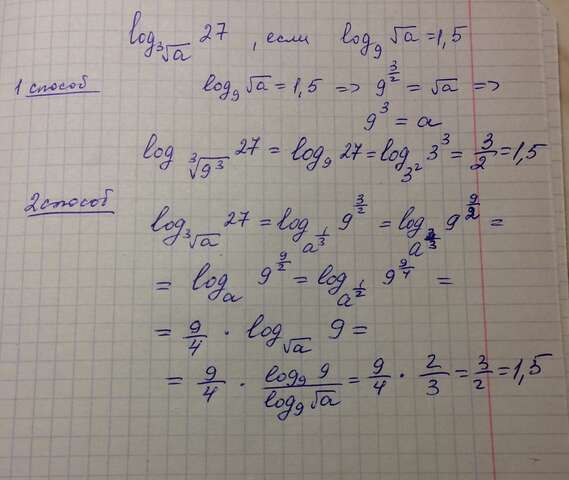 log_{∛a} 27 , если log₉ √a = 1,5
1 способ
log₉ √a = 1,5 => 9^{3/2} = √a =>
9³ = a
log_{∛9³} 27 = log₉ 27 = log_{3²} 3³ = 3/2 = 1,5
2 способ
log_{∛a} 27 = log_{a^{1/3}} 9^{3/2} = log_{a^{3/3}} 9^{9/2} =
= log_a 9^{9/2} = log_{a^{1/2}} 9^{9/4} =
= 9/4 · log_{√a} 9 =
= 9/4 · log₉ 9 / log₉ √a = 9/4 · 2/3 = 3/2 = 1,5